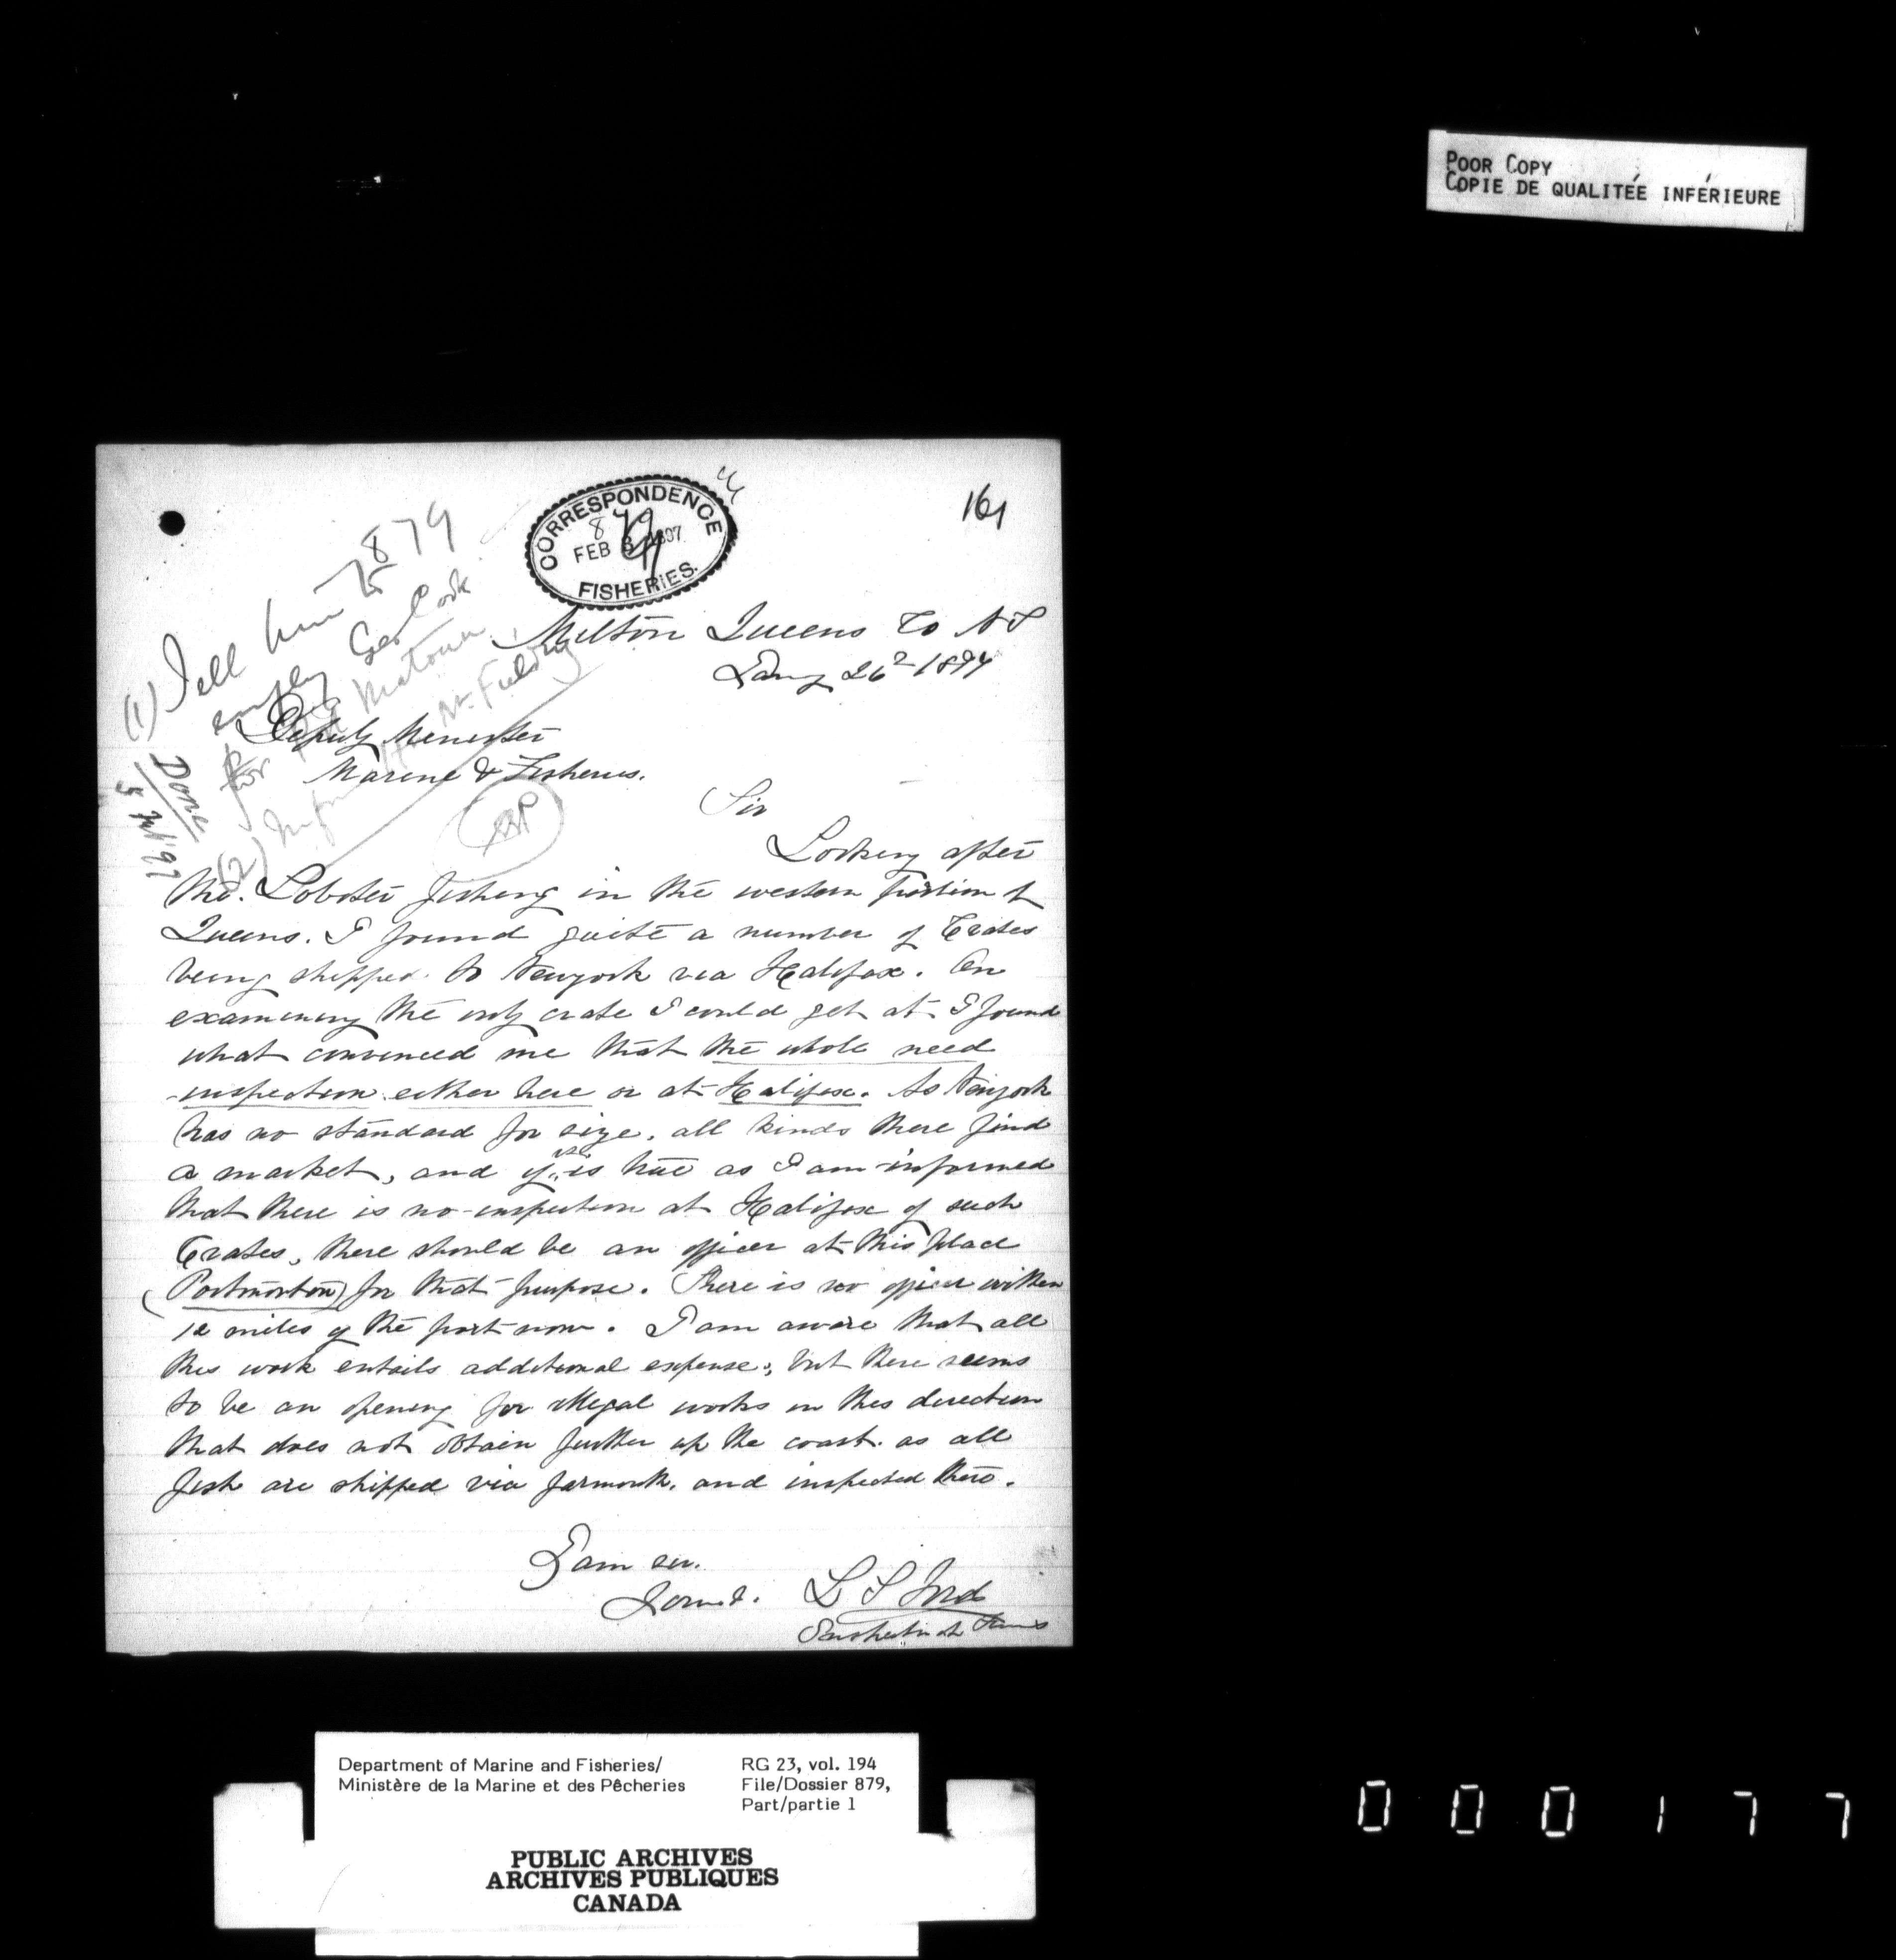 POOR COPY
COPIE DE QUALITÉE INFÉRIEURE
CORRESPONDENCE
879
FEB 3 1897
FISHERIES.
161
879
(1) Tell him to
employ Geo Cook
for Port Matoun
(2) Inform Mr. Fielding
Done
5 Feb '97
Milton Queens Co N S
Jany 26 1897
Deputy Minister
Marine & Fisheries.
Sir
Looking after
the Lobster fishing in the western portion of
Queens. I found quite a number of Crates
being shipped to Newyork via Halifax. On
examining the only crate I could get at I found
what convinced me that the whole need
inspection either here or at Halifax. As Newyork
has no standard for size, all kinds there find
a market, and if is true as I am informed
that there is no inspection at Halifax of such
Crates, there should be an officer at this place
(Portmorton) for that purpose. There is no officer within
12 miles of the port now. I am aware that all
this work entails additional expense, but there seems
to be an opening for illegal works in this direction
that does not obtain further up the coast. as all
fish are shipped via Yarmouth. and inspected there.
I am sir.
L S Ford
Department of Marine and Fisheries/
Ministère de la Marine et des Pêcheries
RG 23, vol. 194
File/Dossier 879,
Part/partie 1
PUBLIC ARCHIVES
ARCHIVES PUBLIQUES
CANADA
000177